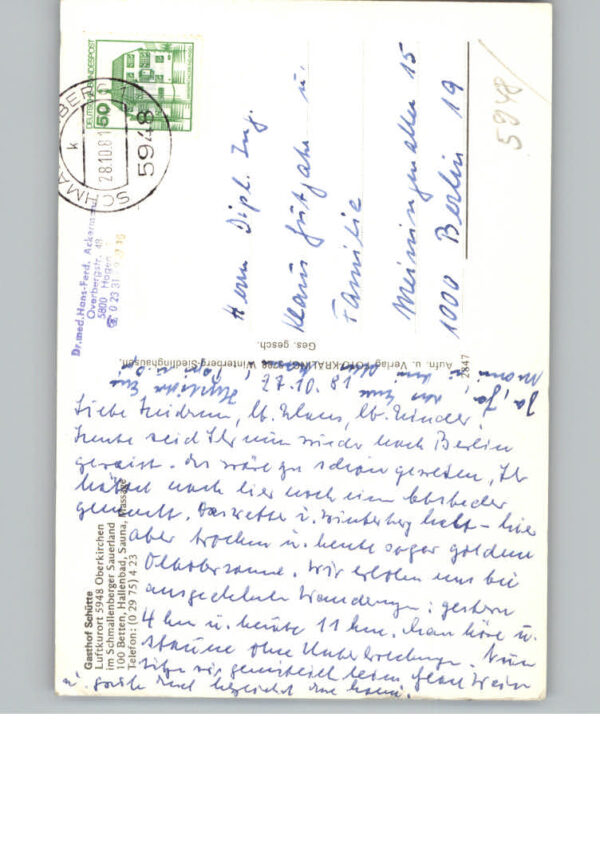 DEUTSCHE BUNDESPOST
50
SCHMALLENBERG
28.10.81
5948
5948
Dr. med. Hans-Ferd. Ackermann
Overbergstr. 49
5800 Hagen
0 23 31
Herrn Dipl. Ing.
Klaus Gutjahr u.
Familie
Meiningenallee 15
1000 Berlin 19
Aufn. u. Verlag FOTO-KRALING, 5788 Winterberg-Siedlinghausen
Ges. gesch.
2847
Gasthof Schütte
Luftkurort 5948 Oberkirchen
im Schmallenberger Sauerland
100 Betten, Hallenbad, Sauna, Massage
Telefon: (0 29 75) 4 23
Liebe Heidrun, lb. Klaus, lb. Kinder!
Heute seid Ihr nun wieder nach Berlin
gereist. Es wäre zu schön gewesen, Ihr
hättet noch hier noch einen Abstecher
gemacht. Das Wetter i. Winterberg kalt – hier
aber trocken u. heute sogar goldene
Oktobersonne. Wir erholen uns bei
ausgedehnten Wanderungen: gestern
4 km u. heute 11 km. Man höre u.
staune ohne Unterbrechung. Nun
sitzen wir gemütlich beim Glas Wein
u.